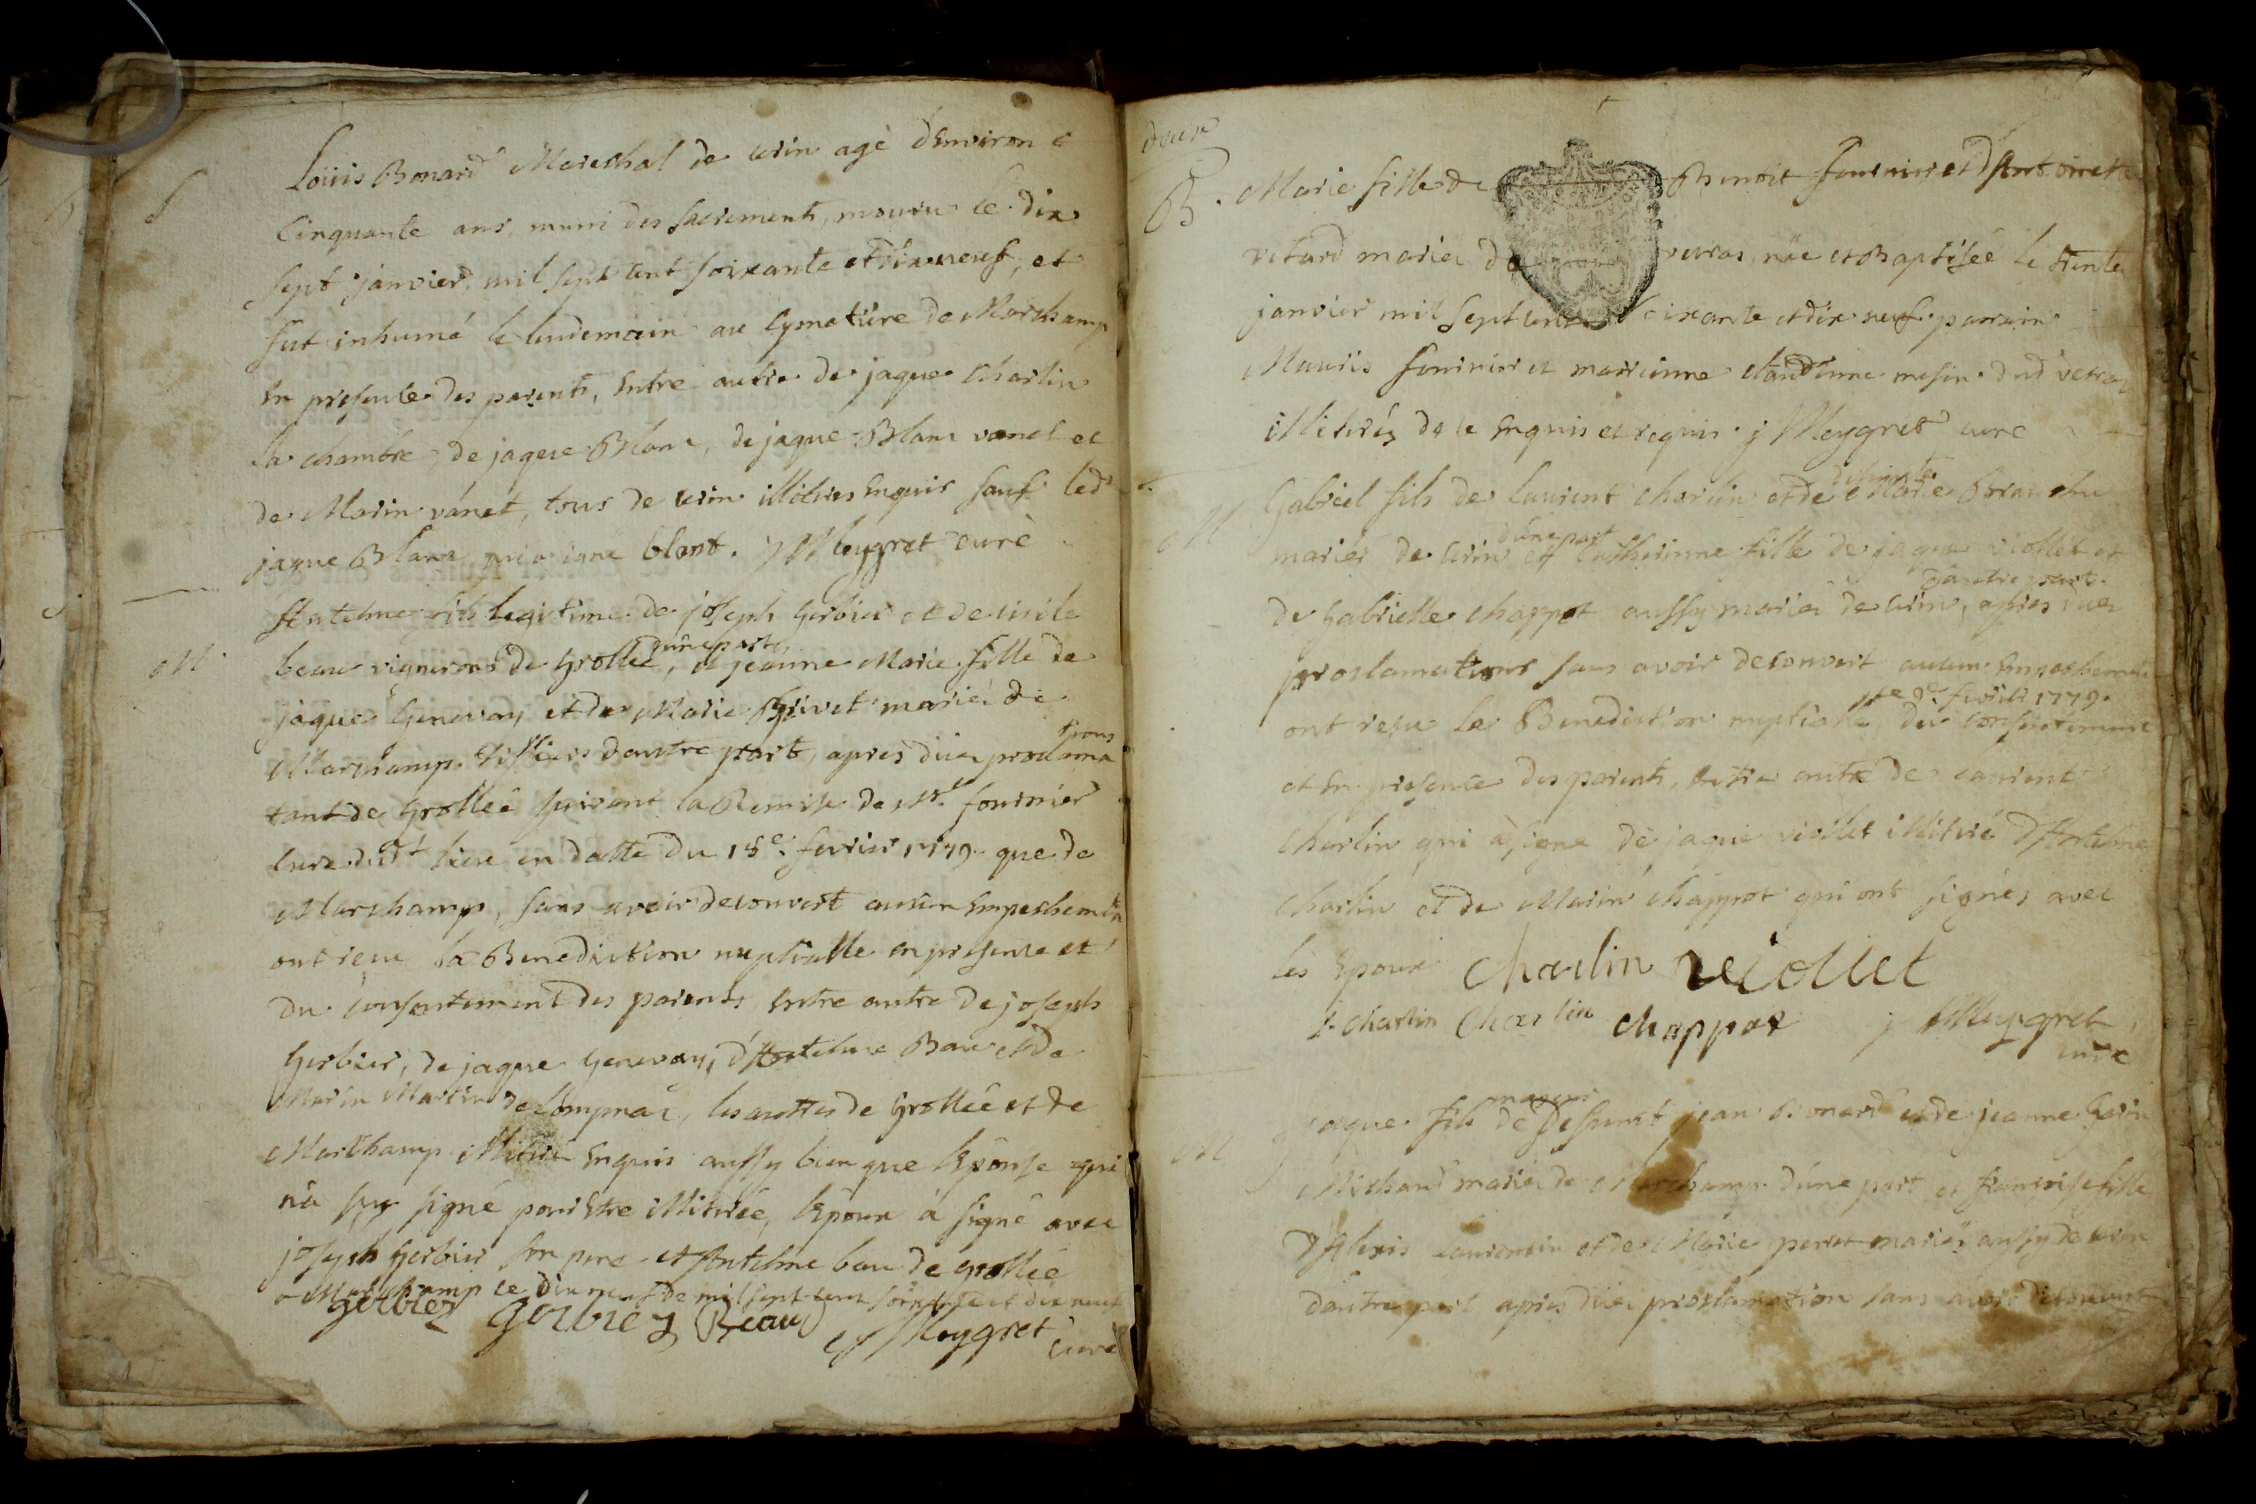 S
Loüis Bonard Mareshal de Crin agé d'Environ
Cinquante ans, muni des sacrements, mouru le dix
sept janvier mil sept cent soixante et dix neuf, et
fut inhumé le lendemain au Cymetiere de Marchamp
En presence des parents, Entre autre de jaque Charlin
la chambre, de jaque Blanc, de jaque Blanc vanet et
de Marin vanet, tous de Crin illitérés Enquis sauf led
jaque Blanc qui a signe blant. j Meygret curé
M
Antelme fils legitime de joseph Gerbier et de
beau vignerons de Grollée, d'une part, et jeanne Marie fille de
jaque Genevay et de Marie Grivet mariés de
Marchamp d'autre part, apres düe proclamations
tant de Grollée suivant la Remise de Mr fournier
Curé dud lieu en datte du 15e fevrier 1779 que de
Marchamp, sans avoir decouvert aucun Empeshement
ont reçu la Benediction nuptialle en presence et
du consentement des parents Entre autre de joseph
Gerbier, de jaque Genevay, d'Antelme Bau et de
Marin Martin de Lompnaz, les de Grollée et de
Marchamp illitérés Enquis aussy bien que l'Epouse qui
n'a sçu signé pour Etre illitérée, l'Epoux à signé avec
joseph Gerbier son pere et Antelme beau de Grollée
a Marchamp le dix neuf de mil sept cent soixante et dix neuf
Gerbier Gerbier Beau
j Meygret curé
deux
B.
Marie fille de Benoit fournier et d'Antoinette
vetard mariés de née et Baptisée le trente
janvier mil sept cent soixante et dix neuf parrain
Mauris fournier et marrienne Claudinne dud
illiterés de ce Enquis et requis. j Meygret curé
M
Gabriel fils de Laurent charlin et de deffunte Marie
mariés de Crin d'une part et Catherinne fille de jaque viollet et
de Gabrielle chappot aussy mariés de Crin, d'autre part. apres düe
proclamations sans avoir decouvert aucun Empeshement
ont reçu la Benediction nuptialle fevrier 1779. du consentement
et En presence des parents, Entre autre de Laurent
Charlin qui à signe de jaque viollet illiteré d'Antelme
Charlin et de Marin chappot qui ont signés avec
les Epoux Charlin viollet
Charlin Charlin chappot j Meygret
curé
M
jaque fils majeur de Defunt jean Bonard et de jeanne
Michaud mariés de Marchamp d'une part et francoise fille
d'Alexis Laurencin et de Marie perret mariés aussy de Crin
d'autre part apres düe proclamation sans avoir decouvert